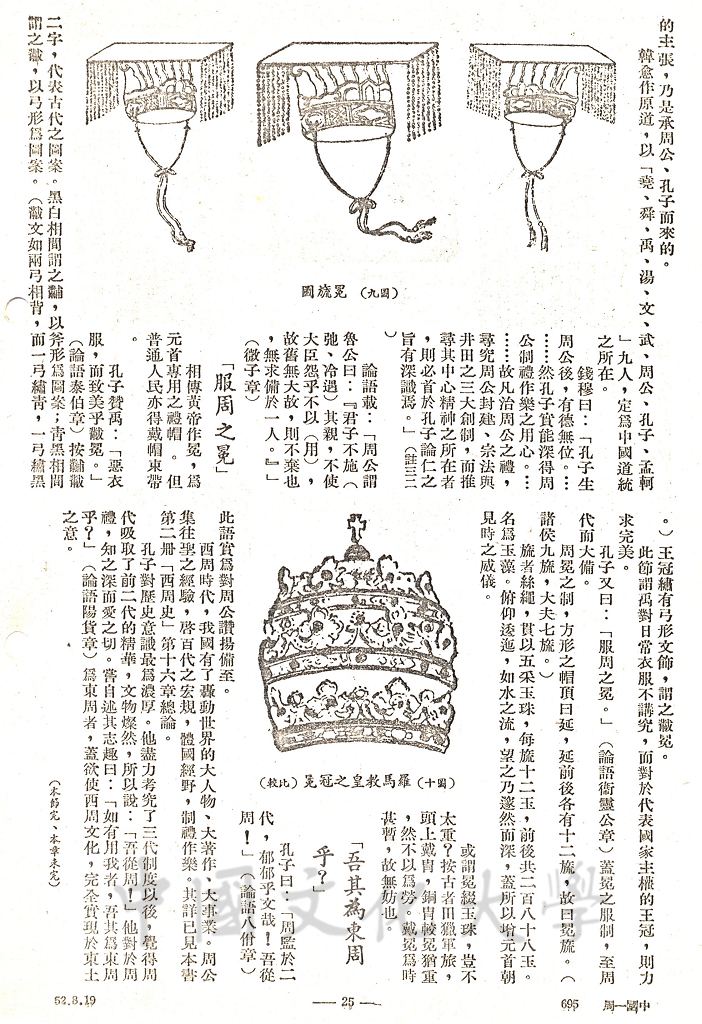 的主張，乃是承周公、孔子而來的。
韓愈作原道，以「堯、舜、禹、湯、文、武、周公、孔子、孟軻
」九人，定為中國道統
之所在。
錢穆曰：「孔子生
周公後，有德無位。…
……然孔子實能深得周
公制禮作樂之用心。…
……故凡治周公之禮，
尋究周公封建、宗法與
井田之三大創制，而推
尋其中心精神之所在者
，則必首於孔子論仁之
旨有深識焉。」（註三三
）
論語載：「周公謂
魯公曰：『君子不施（
弛、冷遇）其親，不使
大臣怨乎不以（用），
故舊無大故，則不棄也
，無求備於一人。』」
（微子章）
「服周之冕」
相傳黃帝作冕，為
元首專用之禮帽。但
普通人民亦得戴帽束帶
。
孔子贊禹：「惡衣
服，而致美乎黻冕。」
（論語泰伯章）按黼黻
二字，代表古代之圖案。黑白相間謂之黼，以斧形為圖案；青黑相間
謂之黻，以弓形為圖案。（黻文如兩弓相背，而一弓繡青，一弓繡黑
。）王冠繡有弓形文飾，謂之黻冕。
此節謂禹對日常衣服不講究，而對於代表國家主權的王冠，則力
求完美。
孔子又曰：「服周之冕。」（論語衞靈公章）蓋冕之服制，至周
代而大備。
周冕之制，方形之帽頂曰延，延前後各有十二旒，故曰冕旒。（
諸侯九旒，大夫七旒。）
旒者絲繩，貫以五采玉珠，每旒十二玉，前後共二百八十八玉。
名為玉藻。俯仰逶迤，如水之流，望之乃邃然而深，蓋所以增元首朝
見時之威儀。
或謂冕綴玉珠，豈不
太重？按古者田獵軍旅，
頭上戴冑，銅冑較冕猶重
，然不以為勞。戴冕為時
甚暫，故無妨也。
「吾其為東周
乎？」
孔子曰：「周監於二
代，郁郁乎文哉！吾從
周！」（論語八佾章）
此語實為對周公讚揚備至。
西周時代，我國有了轟動世界的大人物、大著作、大事業。周公
集往聖之經驗，啓百代之宏規，體國經野，制禮作樂。其詳已見本書
第二册「西周史」第十六章總論。
孔子對歷史意識最為濃厚。他盡力考究了三代制度以後，覺得周
代吸取了前二代的精華，文物燦然，所以說：「吾從周！」他對於周
禮，知之深而愛之切。嘗自述其志趣曰：「如有用我者，吾其為東周
乎？」（論語陽貨章）為東周者，蓋欲使西周文化，完全實現於東土
之意。
（本節完、本章未完）
（圖九）冕旒圖
（圖十）羅馬教皇之冠冕（比較）
中國文化大學
52.8.19
— 25 —
695
中國一周